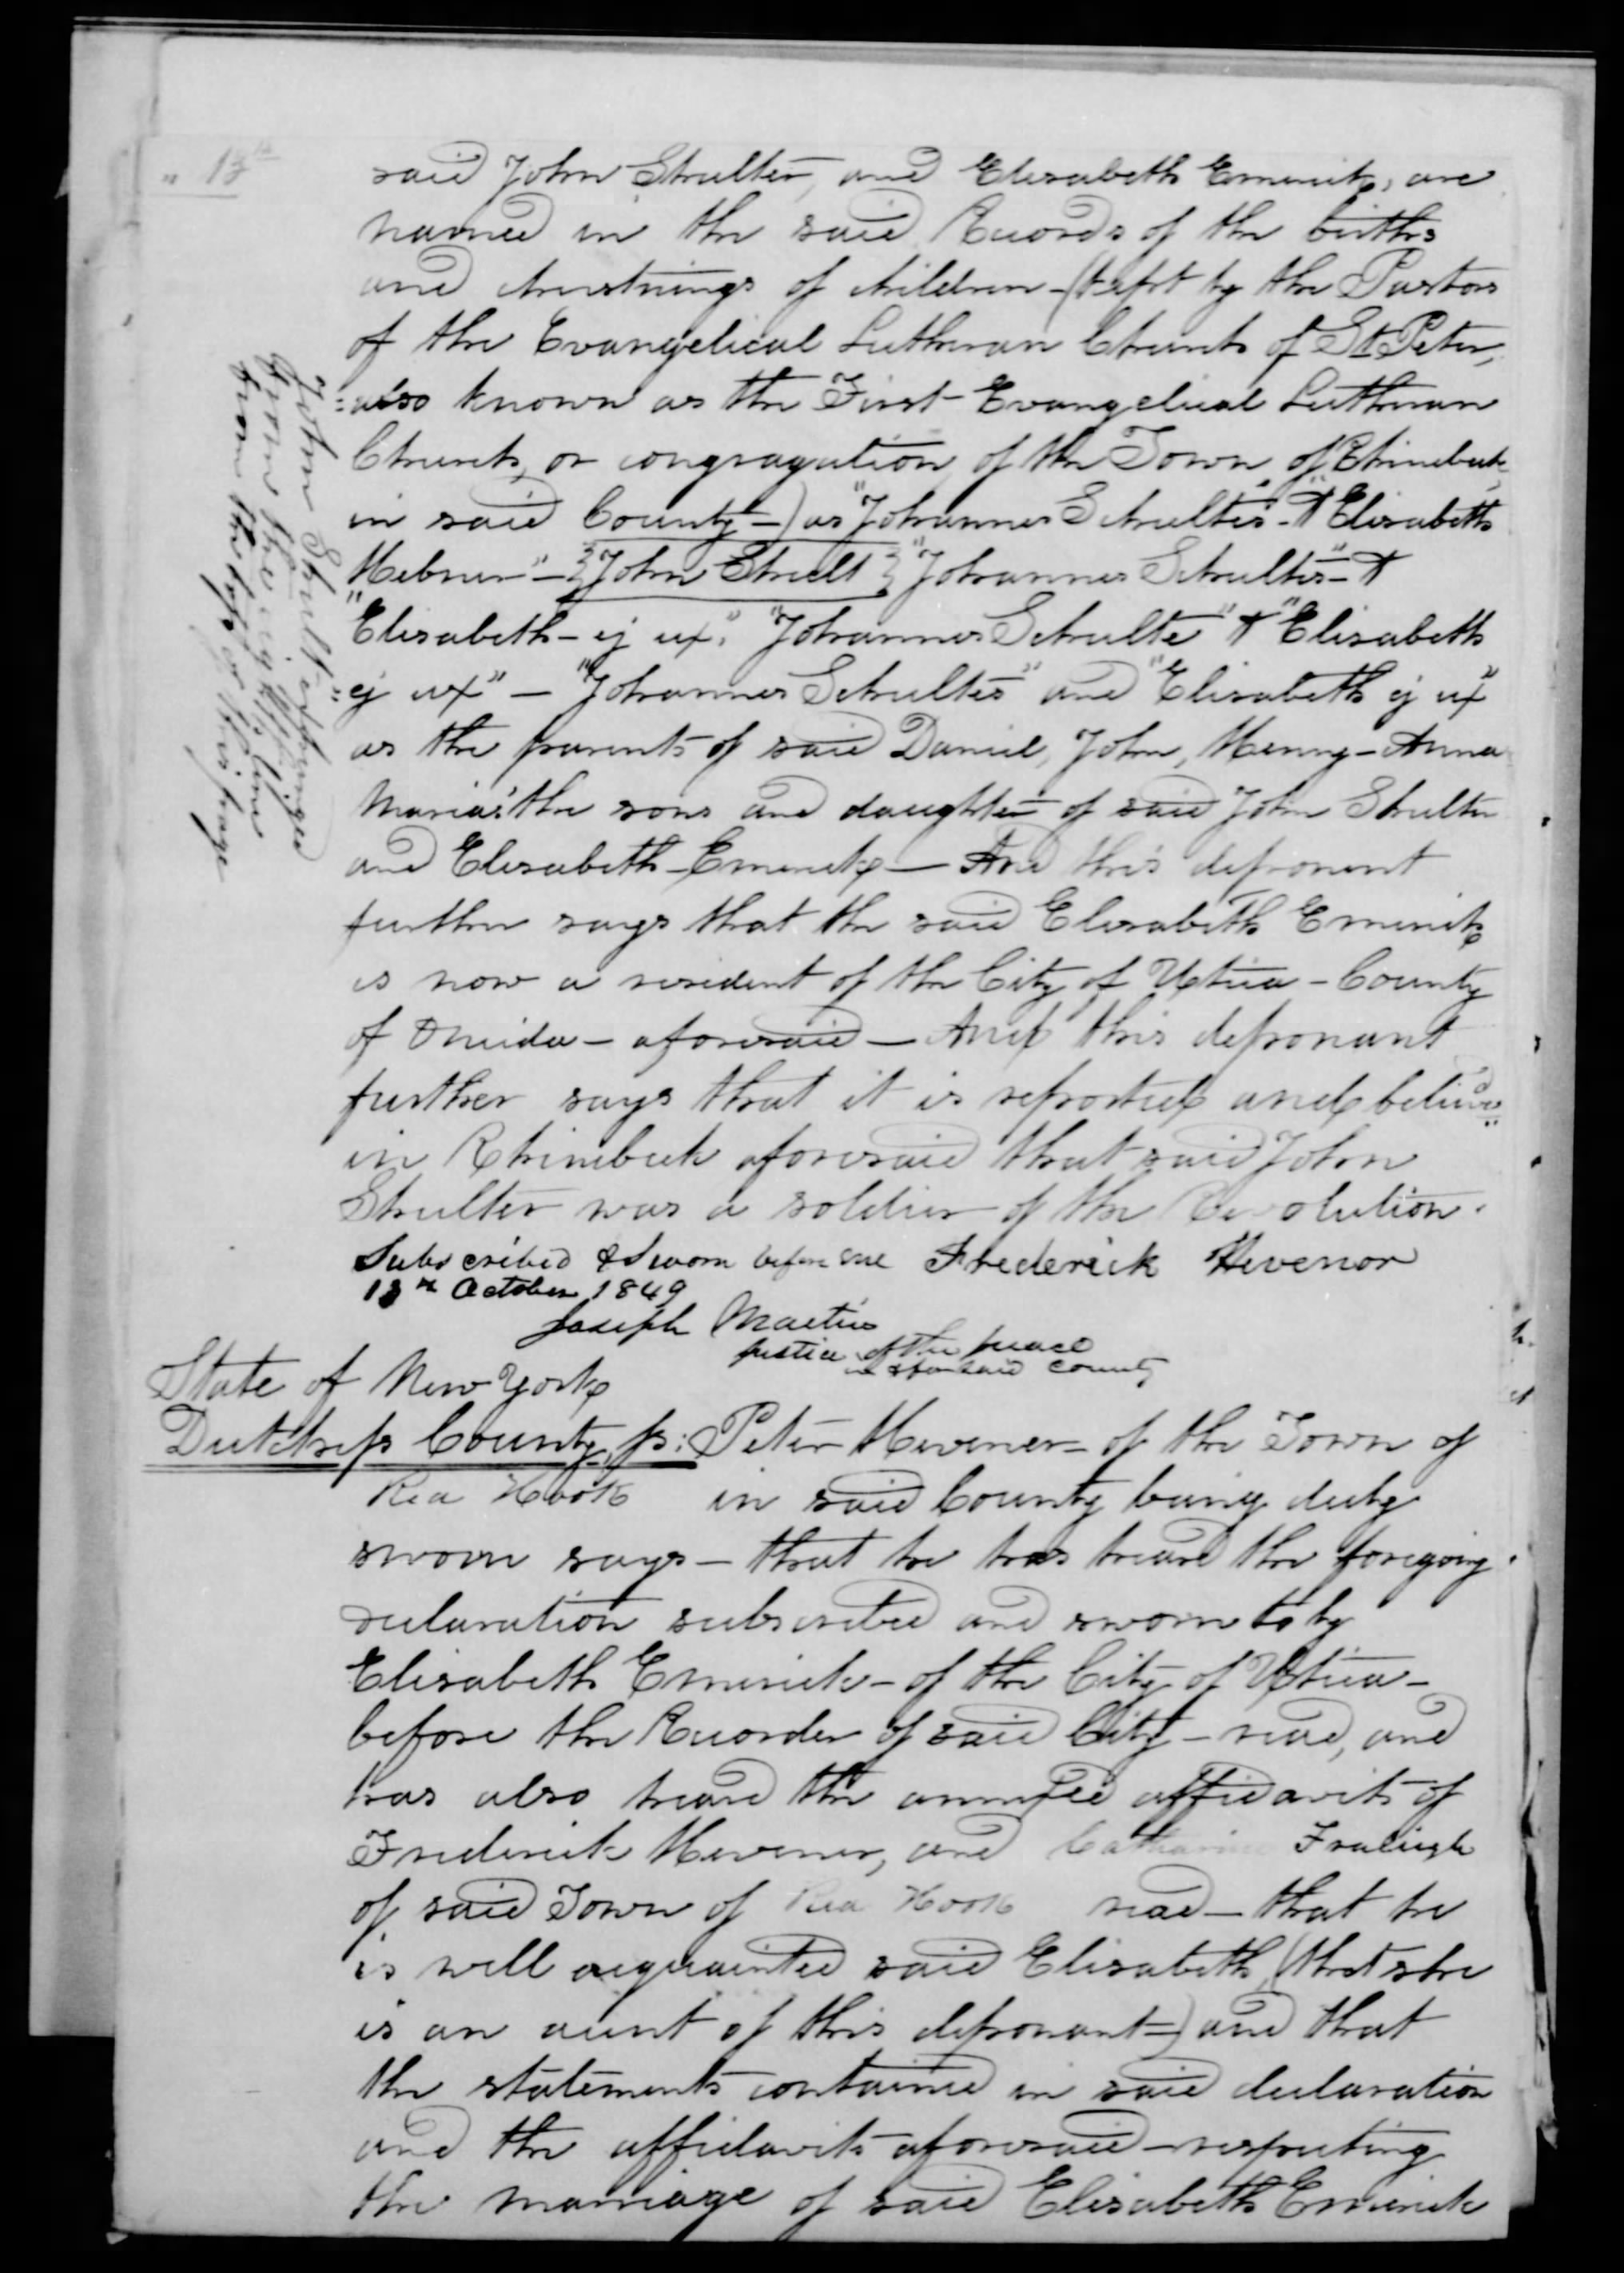 " 13th
said John Shulter, and Elisabeth Emerick, are
named in the said Records of the births
and christnings of children - (kept by the Pastors
of the Evangelical Lutheran Church of St. Peter,
also known as the First Evangelical Lutheran
Church, or congragation, of the Town, of Rhinebeck,
in said County -) as "Johannes Schultes" - & "Elisabeth
Hebner" - {John Shult} "Johannes Schultes" - &
"Elisabeth - ej ux," "Johannes Schulte" & "Elisabeth
ej ux" - "Johannes Schultes" and "Elisabeth ej ux"
as the parents of said Daniel, John, Henry - Anna
Maria: the sons and daughter of said John Shulter
and Elisabeth Emerick - And this deponent
further says that the said Elisabeth Emerick
is now a resident of the City of Utica - County
of Oneida - aforesaid - And this deponant
further says that it is reported and believed
in Rhinebeck aforesaid that said John
Shulter was a soldier of the Revolution.
Subscribed & Sworn before me Frederick Hevenor
13th October 1849
Joseph Martin
Justice of the peace
in aforesaid County
John Shult
from the eighth line
from the top of this page
State of New York
Dutchess County, ss: Peter Hevener - of the Town of
Red Hook in said County being duly
sworn says - that he has heard the foregoing
declaration subscribed and sworn to by
Elisabeth Emerick - of the City of Utica -
before the Recorder of said City - read, and
has also heard the annexed affidavits of
Frederick Hevener, and Catharine Fraleigh
of said Town of Red Hook read - that he
is well acquainted said Elisabeth, (that she
is an aunt of this deponant -) and that
the statements contained in said declaration
and the affidavits aforesaid - respecting
the marriage of said Elisabeth Emerick